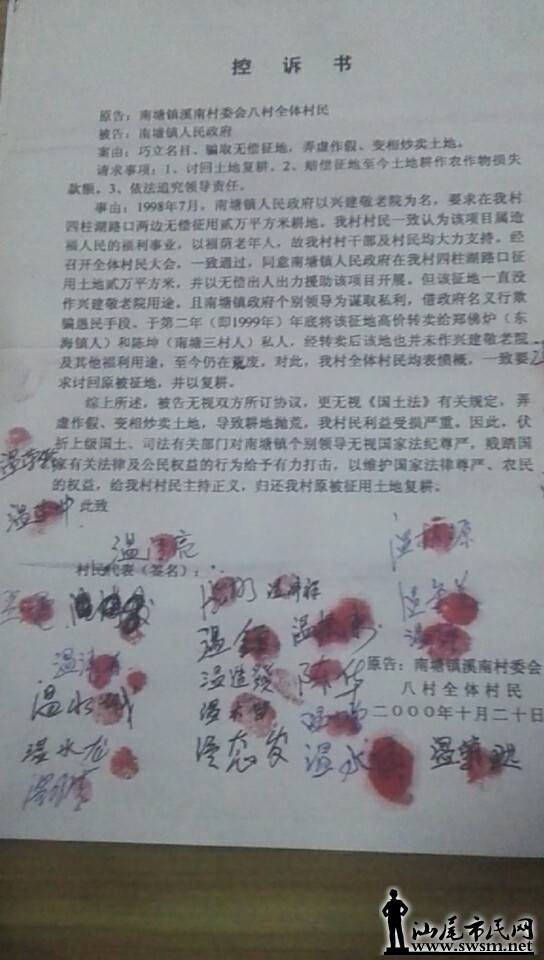 控 诉 书
原告：南塘镇溪南村委会八村全体村民
被告：南塘镇人民政府
案由：巧立名目、骗取无偿征地，弄虚作假、变相炒卖土地。
请求事项：1、讨回土地复耕。2、赔偿征地至今土地耕作农作物损失
款额。3、依法追究领导责任。
事由：1998年7月，南塘镇人民政府以兴建敬老院为名，要求在我村
四柱湖路口两边无偿征用贰万平方米耕地。我村村民一致认为该项目属造
福人民的福利事业，以福荫老年人，故我村村干部及村民均大力支持。经
召开全体村民大会，一致通过，同意南塘镇人民政府在我村四柱湖路口征
用土地贰万平方米，并以无偿出人出力援助该项目开展。但该征地一直没
作兴建敬老院用途。且南塘镇政府个别领导为谋取私利，借政府名义行欺
骗愚民手段。于第二年（即1999年）年底将该征地高价转卖给郑佛炉（东
海镇人）和陈坤（南塘三村人）私人，经转卖后该地也并未作兴建敬老院
及其他福利用途，至今仍在荒废。对此，我村全体村民均表愤慨，一致要
求讨回原被征地，并以复耕。
综上所述，被告无视双方所订协议，更无视《国土法》有关规定，弄
虚作假、变卖土地，导致耕地抛荒，我村村民利益受损严重。因此，伏
祈上级国土、司法有关部门对南塘镇个别领导无视国家法纪尊严，贱踏国
家有关法律及公民权益的行为给予有力打击，以维护国家法律尊严、农民
的权益，给我村村民主持正义，归还我村原被征用土地复耕。
此致
村民代表（签名）：
陈华
温水龙
温水
原告：南塘镇溪南村委会
八村全体村民
二000年十月二十日
汕尾市民网
www.swsm.net